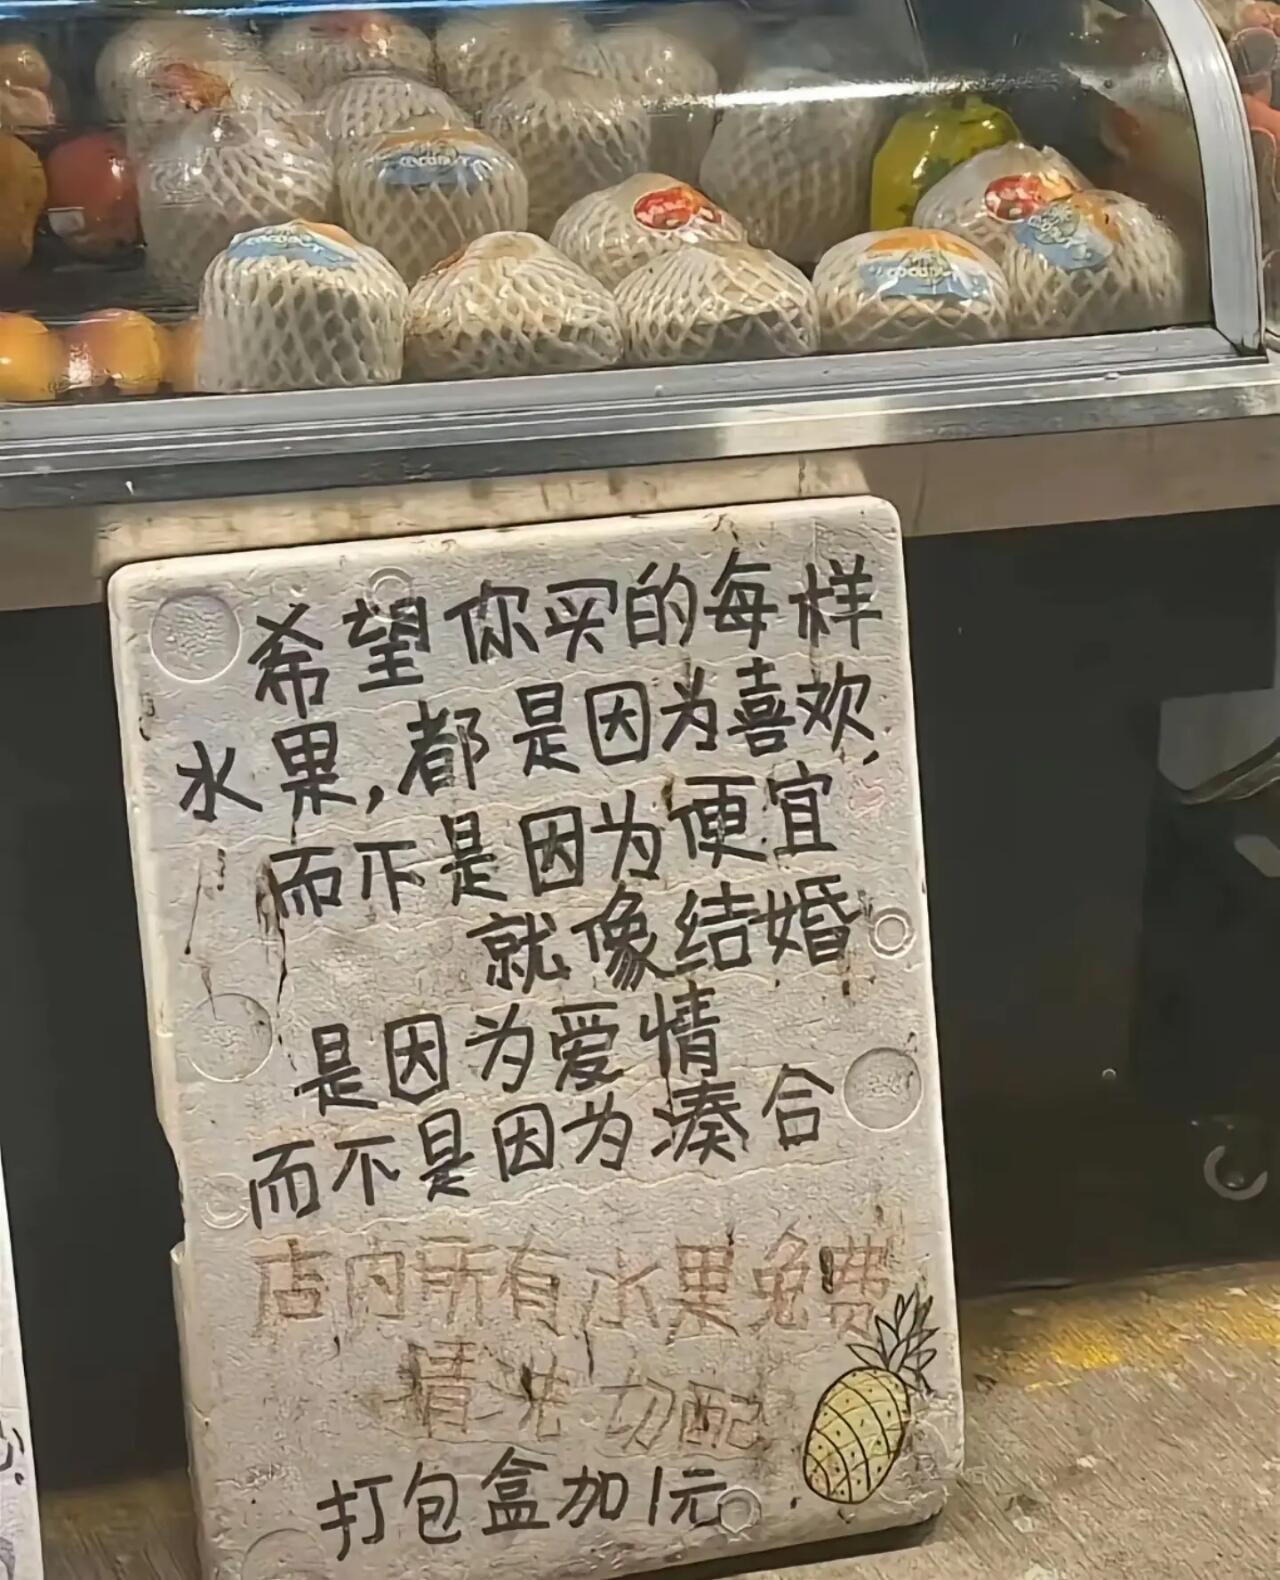 COCONUT
COCONUT
希望你买的每样
水果,都是因为喜欢,
而不是因为便宜
就像结婚
是因为爱情
而不是因为凑合
店内所有水果免费
清洗切配
打包盒加1元